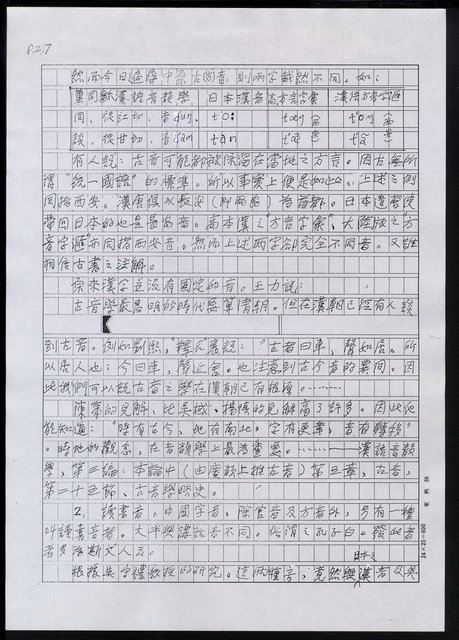 P.2.7
然而今日遍尋中原古國音，則兩字截然不同。如：
董同龢漢語音韻學 日本漢音 高本方言字彙 漢語方音字匯
同，徒
談，徒甘切，音 tan
有人說：古音可能都被保留在當地之方言。因古無所
謂"統一國語"的標準。所以事實上便是如此。上述之例
同指西安。漢唐俱以長安（即西安）為首都。日本遣唐使
帶回日本的也是長安音。高本漢之"方言字彙"，大陸版之"方
音字匯"亦同指西安音。然而上述兩字卻完全不同音。又誰
相信古書之注解。
原來漢字並沒有固定的音。王力說：
古音學最昌明的時代要算清朝。但在漢朝已經有人談
到古音。例如劉熙"釋名"說："古者曰車，聲如居，所
以居人也；今曰車，聲近舍。也注意到古今音的異同。因
此我們可以說古音之學在漢朝已有根源。………
陳第的見解，比吳棫、楊慎的見解高了許多。因此他
能知道："時有古今，地有南北，字有更革，音有轉移"
。時地的觀念，在音韻學上最為重要。——漢語音韻
學，第三編：本論中（由廣韻上推古音）第三章，古音，
第二十五節，古音學略史。
2. 讀書音。中國字音，除官音及方音外，另有一種
叫讀書音者。大半與講話音不同。俗謂之孔子白。發此音
者多為斯文人云。
根據吳守禮教授的研究，這兩種音，竟然與日本之漢音及吳
24×25=600